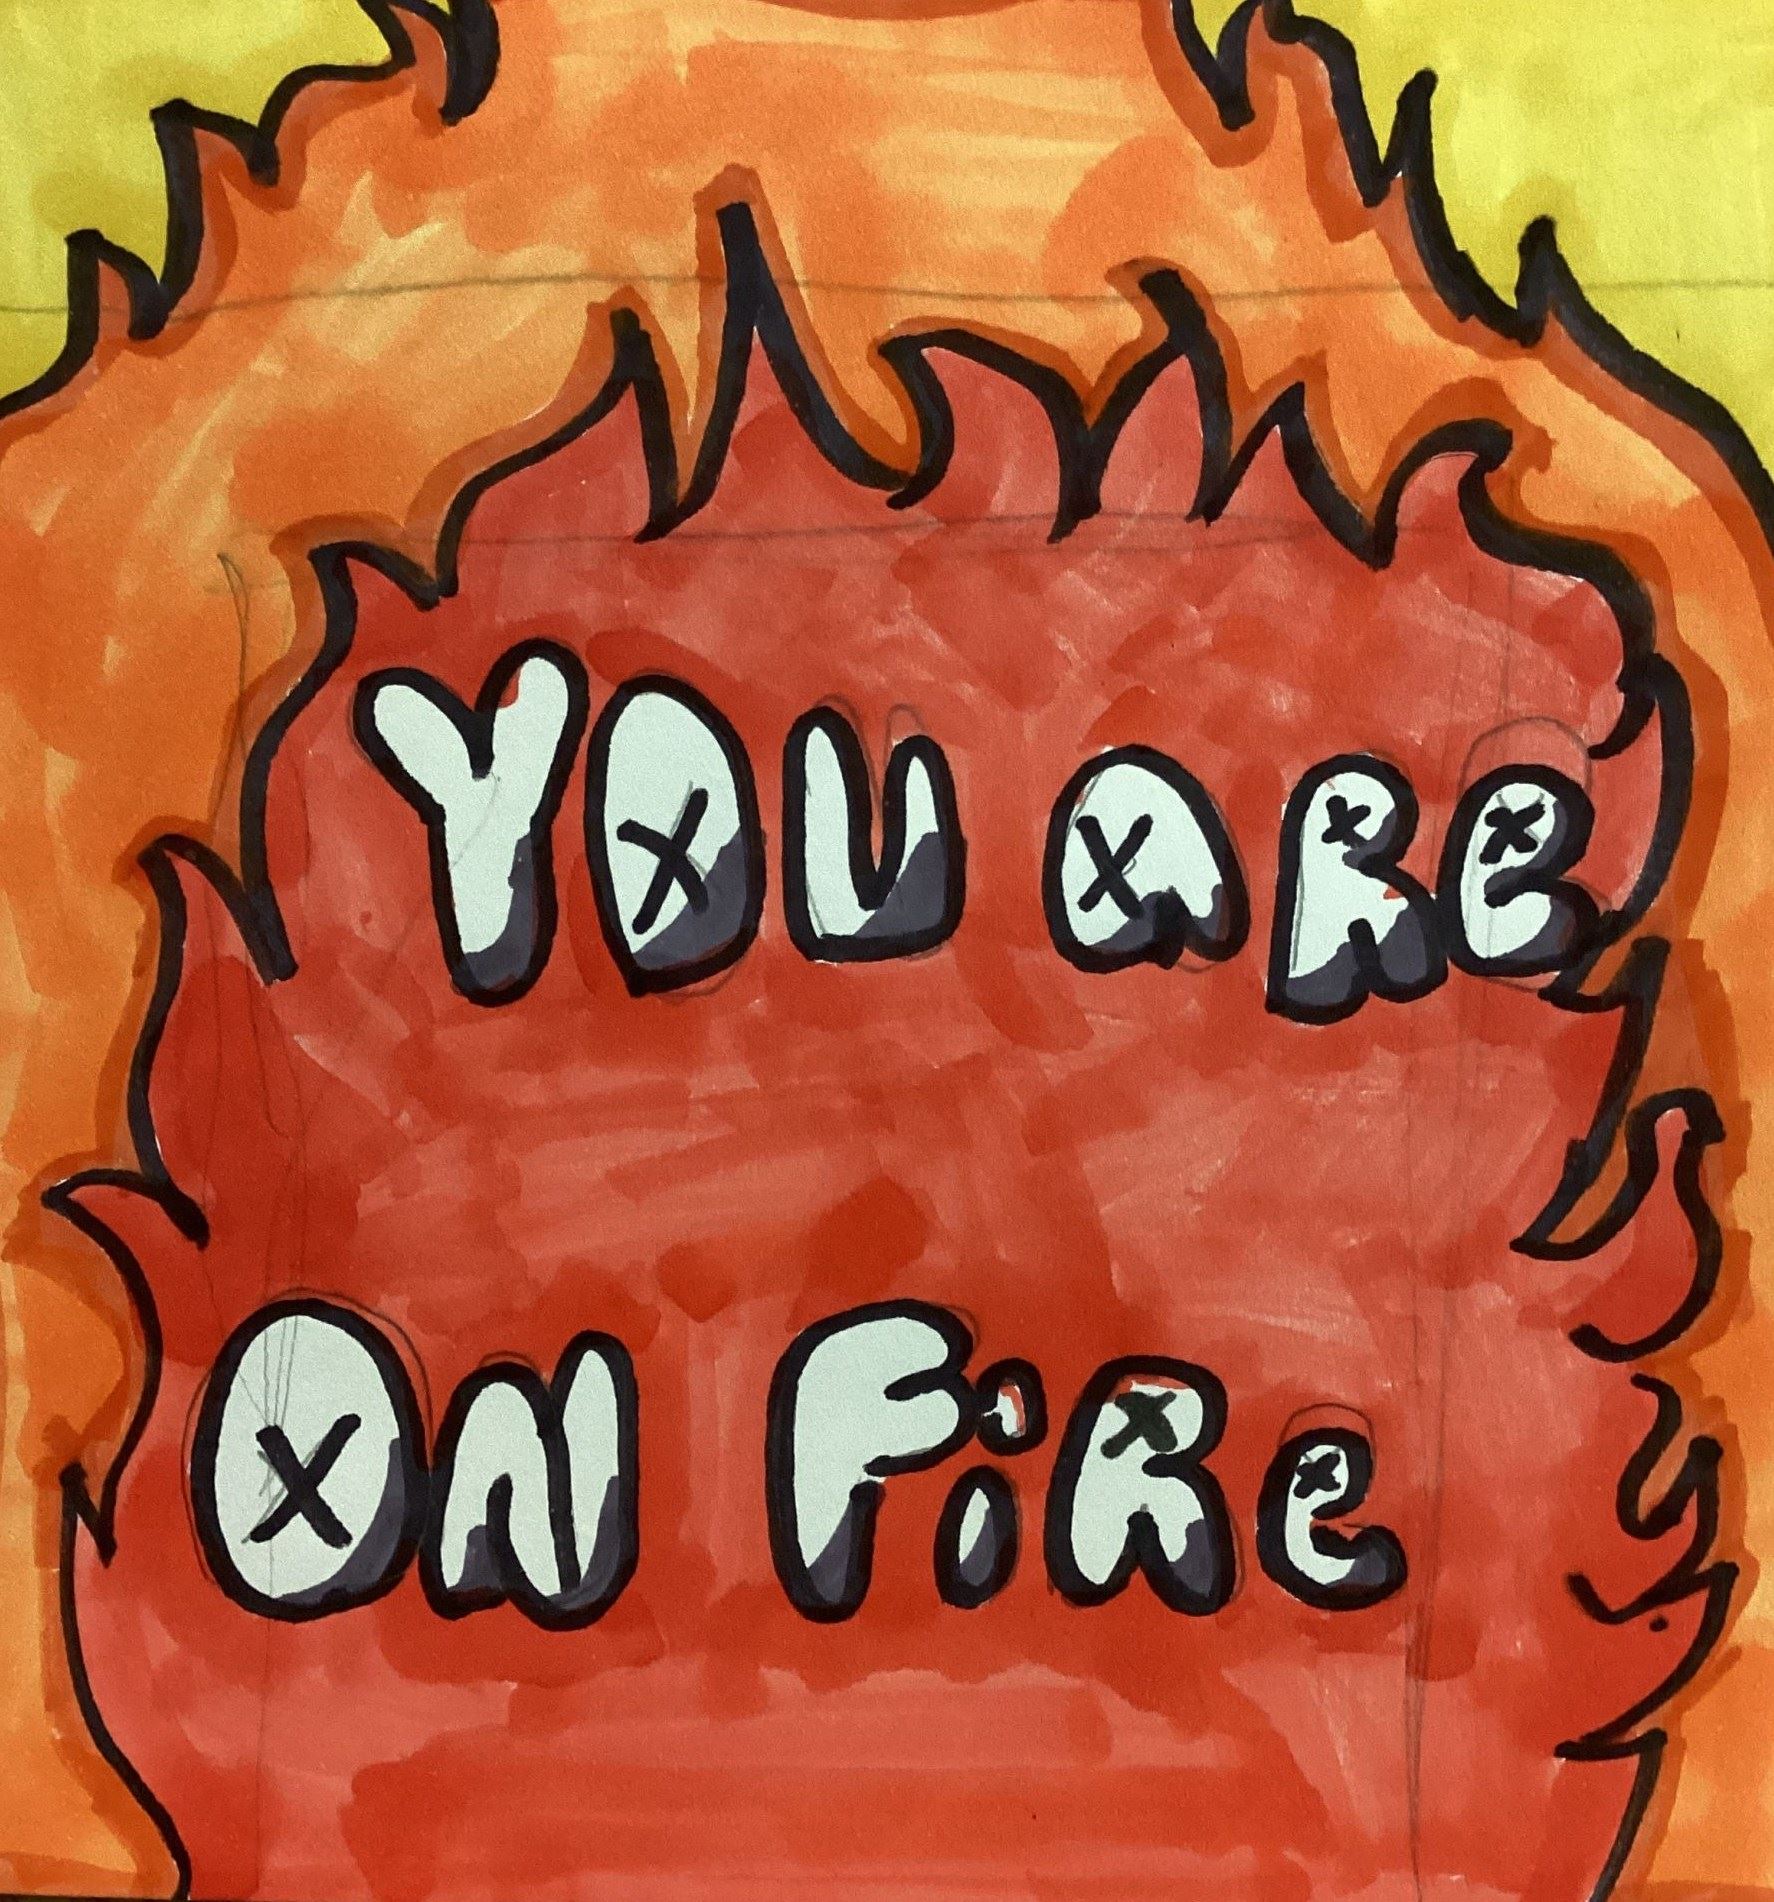 YOU ARE
ON FiRe